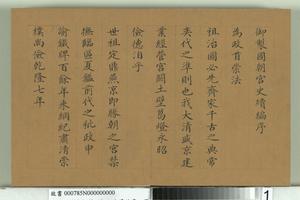 御製國朝宮史續編序
為政首崇法
祖治國必先齊家千古之典常
奕代之準則也我大清盛京建
業經營宮闕土壁葛燈永昭
儉德洎乎
世祖定鼎燕京即勝朝之宮禁
撫臨區夏鑑前代之秕政申
諭鐵牌百餘年來綱紀肅清崇
樸尚儉乾隆七年
故書 000785N000000000
1